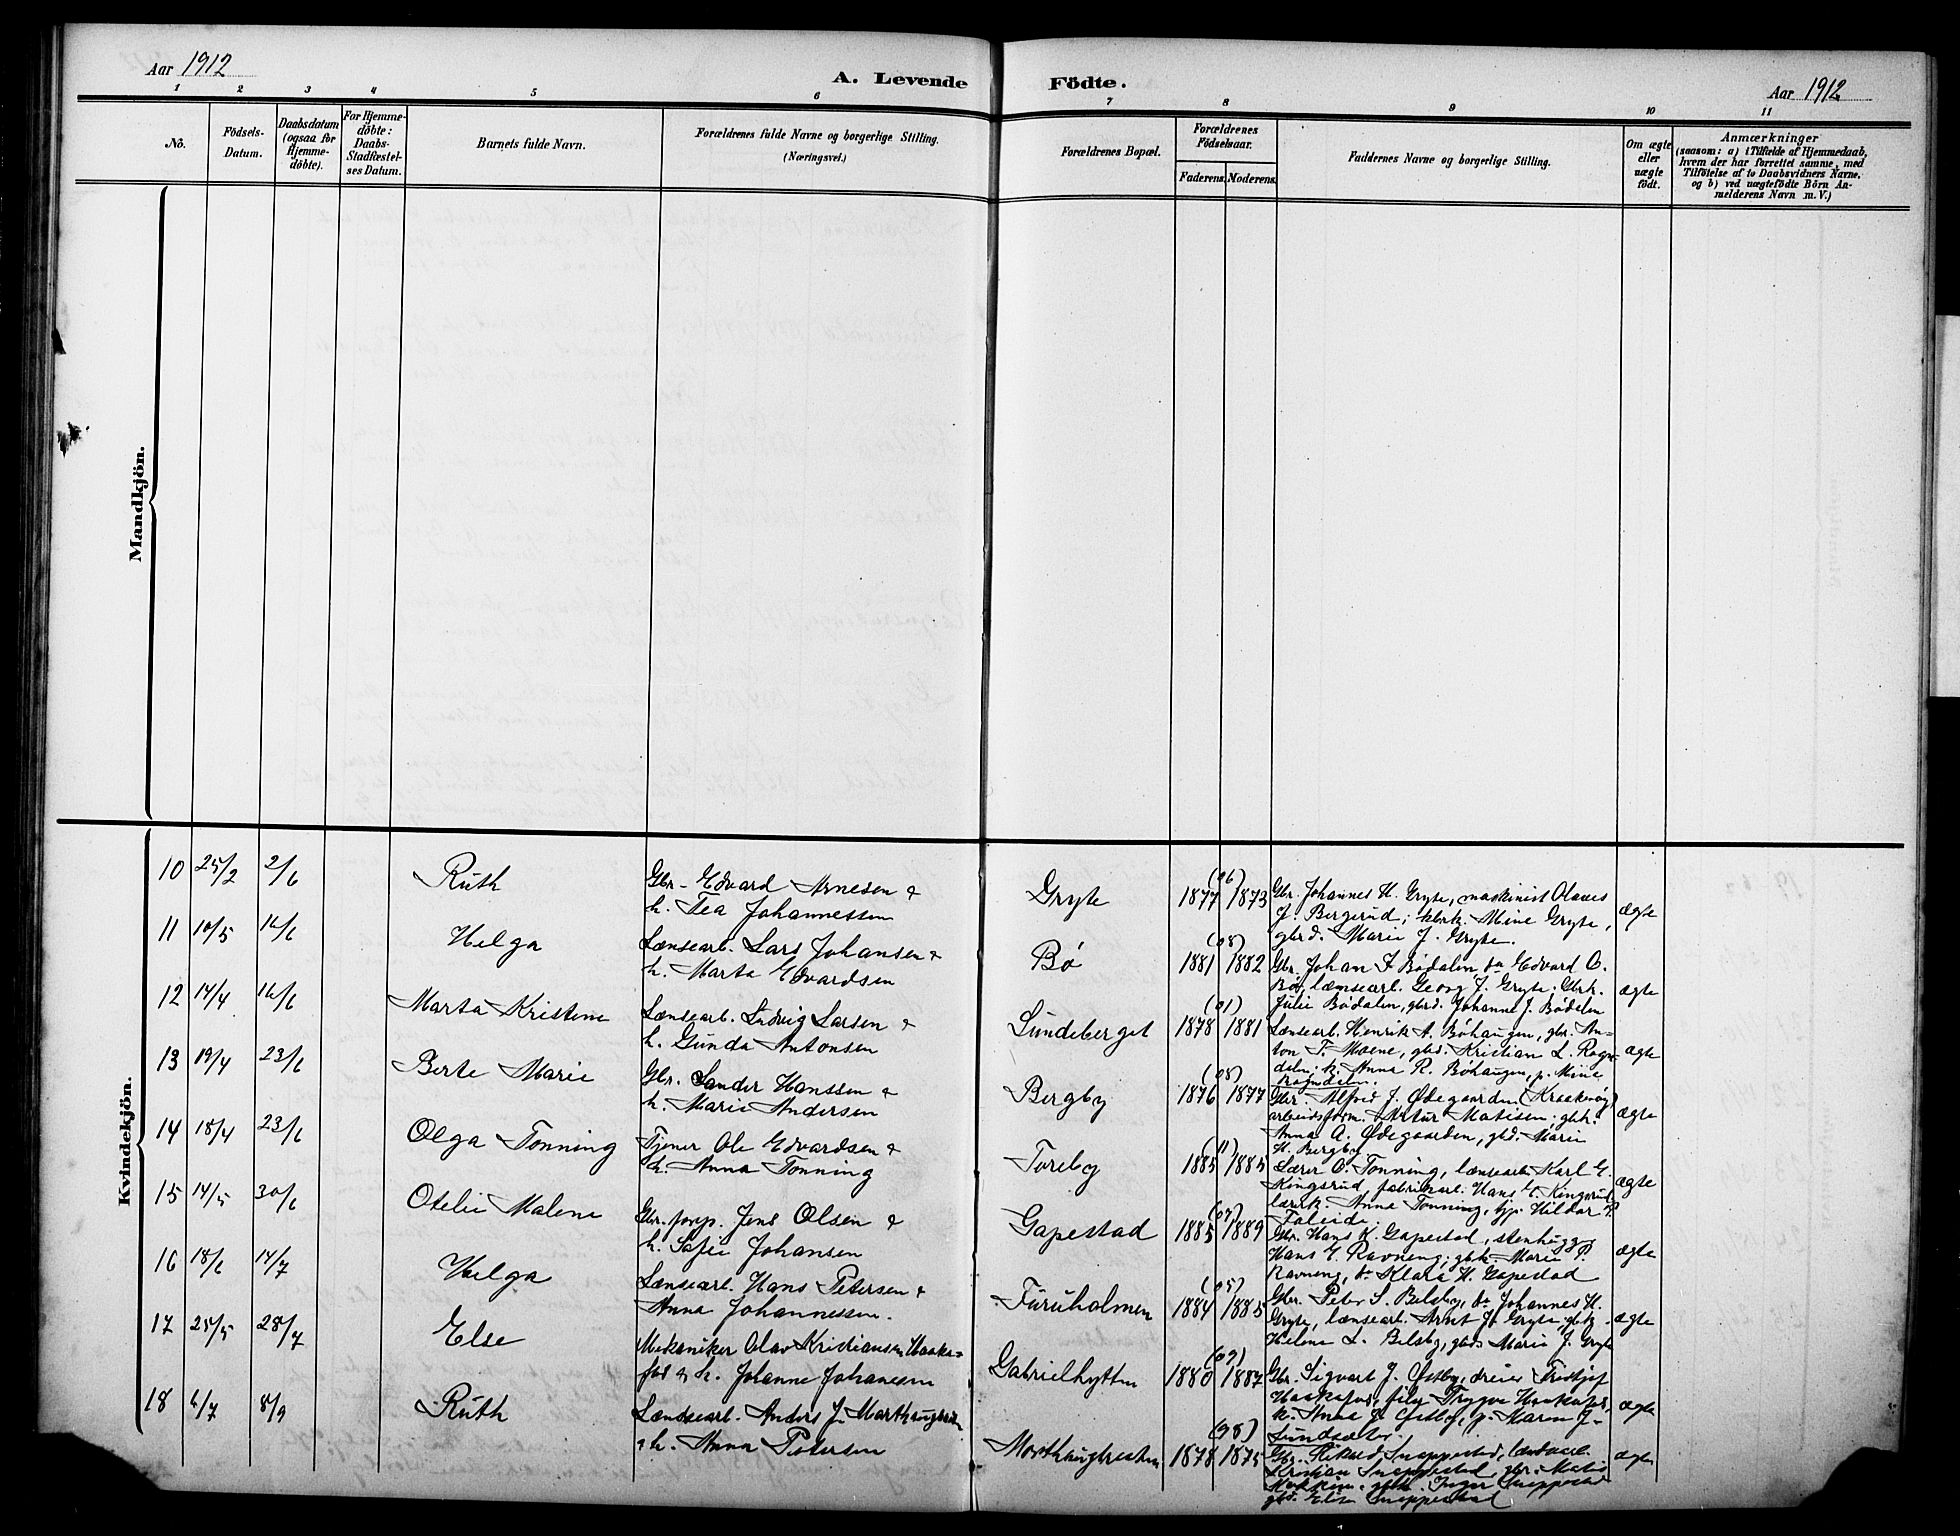 Aar 1912
A. Levende Födte.
Aar 1912
1 2 3 4 5 6 7 8 9 10 11
No.
Födsels-
Datum.
Daabsdatum
(ogsaa for
Hjemme-
döbte).
For Hjemme-
döbte:
Daabs-
Stadfæstel-
ses Datum.
Barnets fulde Navn.
Forældrenes fulde Navne og borgerlige Stilling.
(Næringsvei.)
Forældrenes Bopæl.
Forældrenes
Födselsaar.
Faderens. Moderens.
Faddernes Navne og borgerlige Stilling.
Om ægte
eller
uægte
födt.
Anmærkninger
(saasom: a) i Tilfælde af Hjemmedaab,
hvem der har forrettet samme, med
Tilföielse af to Daabsvidners Navne.
og b) ved uægtefödte Börn An-
melderens Navn m. V.)
Mandkjön.
Kvindekjön.
10 25/2 2/6 Ruth
Gbr. Edvard Arnesen &
h. Tea Johannessen
Gryte (06) 1877 1873
Gbr. Johannes H. Gryte, maskinist Olaves
J. Bergerud; kbrk. Mine Gryte,
gbrd. Marie J. Gryte.
ægte
11 10/5 16/6 Helga
Lænsearb. Lars Johansen &
h. Marta Edvardsen
Bø (08) 1881 1882
Gbr. Johan J Bødalen, do Edvard O.
Bø, lænsearb. Georg J. Gryte; Gbrk.
Julie Bødalen, gbrd. Johanne J. Bødalen
ægte
12 14/4 16/6 Marta Kristine
Lænsearb. Ludvig Larsen &
h. Gunda Antonsen
Lundeberget (01) 1878 1881
Lænsearb. Henrik A. Bøhaugen, gbr. An-
ton T. Moene, gbs. Kristian L. Rogn-
dalen; k. Anna R. Bøhaugen, p. Mine
Rogndalen.
ægte
13 19/4 23/6 Berte Marie
Gbr. Sander Hanssen &
h. Marie Andersen
Bergby (08) 1876 1877
Gbr. Alfred J. Ødegaarden (Kraakerøy)
arbeidsform. Artur Matisen; gbrk.
Anna A. Ødegaarden, gbd. Marie
H. Bergby.
ægte
14 18/4 23/6 Olga Tonning
Tjener Ole Edvardsen &
h. Anna Tonning
Toreby (11) 1885 1885
Lærer O. Tonning, lænsearb. Karl E.
Kingsrud, fabrikarb. Hans E. Kingsrud,
lærk. Anna Tonning, Hildur P.
Faleide.
ægte
15 14/5 30/6 Otelie Malene
Gbr. forp. Jens Olsen &
h. Sofie Johansen
Gapestad (07) 1885 1889
Gbr. Hans K. Gapestad, stenhugger
Hans E. Ravneng; gbk. Marie P.
Ravneng, do Klara H. Gapestad
ægte
16 18/6 14/7 Helga
Lænsearb. Hans Petersen &
Anna Johannessen.
Furuholmen (05) 1884 1885
Gbr. Peter S. Belsby, do Johannes H.
Gryte, lænsearb. Arnt J. Gryte; gbk.
Helene L. Belsby, gbd. Marie J. Gryte
ægte
17 25/5 28/7 Else
Mekaniker Olav Kristiansen Haaka-
fos & h. Johanne Johanesen
Gabrielhytten (09) 1880 1887
Gbr. Sigvart J. Østby, dreier Fridtjof
Haakafos, Trygve Haakafos,
k. Anna J. Østby, p. Karen J.
Lundsæter.
ægte
18 6/7 8/9 Ruth
Lændsearb. Anders J. Morthaugbraaten
& h. Anna Petersen
Morthaugbraaten (98) 1878 1875
Gbr. Rikard Snoppestad, lændsearb.
Kristian Snoppestad, gbr. Matis
gbk. Inger Snoppestad
gbd. Elise Snoppestad
ægte